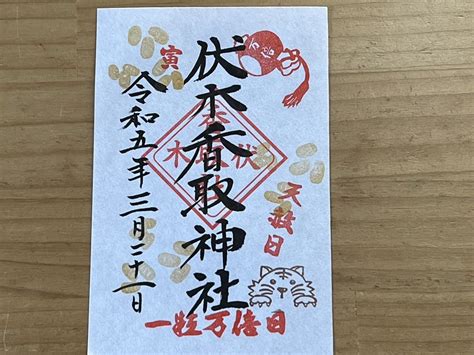 伏木香取神社
天赦日
寅
令和五年三月二十一日
一粒万倍日